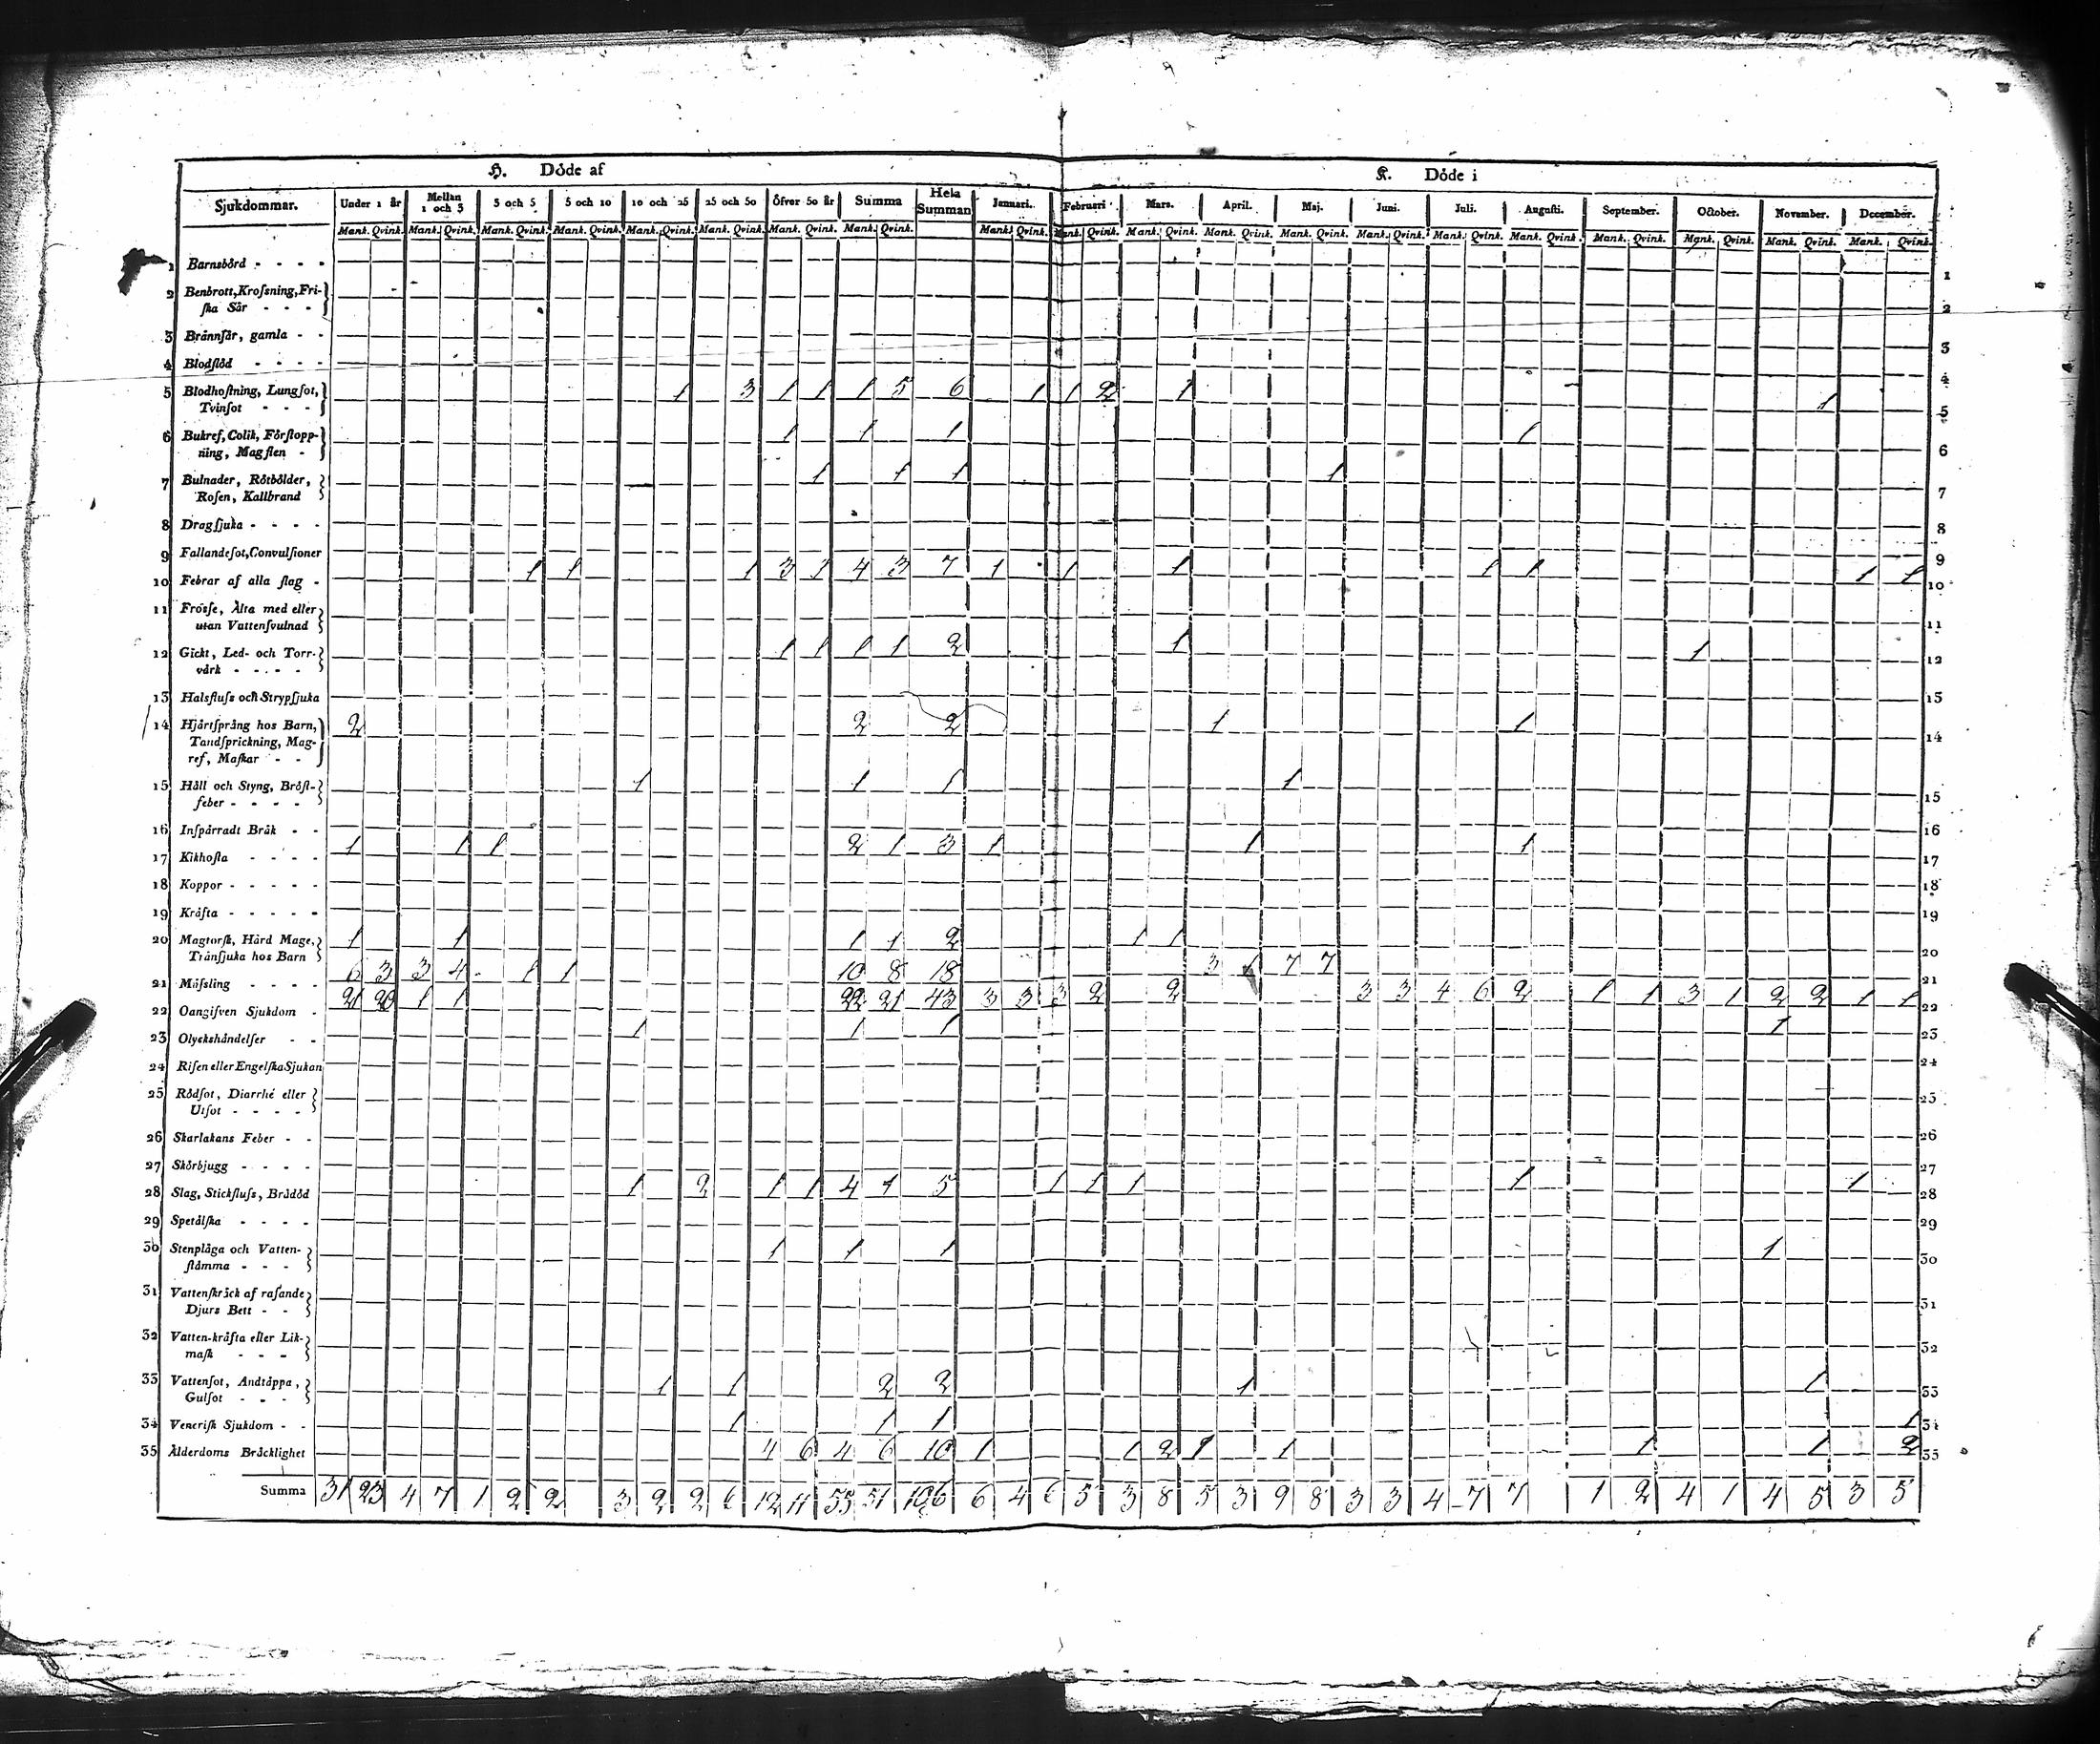 H. Döde af
K. Döde i
Sjukdommar. Under 1 år Mellan 1 och 3 3 och 5 5 och 10 10 och 25 25 och 50 öfver 50 år Summa Hela Summan Januari. Februari Mars. April. Maj. Juni. Juli. Augusti. September. October. November. December.
Mank. Qvink. Mank. Qvink. Mank. Qvink. Mank. Qvink. Mank. Qvink. Mank. Qvink. Mank. Qvink. Mank. Qvink. Mank. Qvink. Mank. Qvink. Mank. Qvink. Mank. Qvink. Mank. Qvink. Mank. Qvink. Mank. Qvink. Mank. Qvink. Mank. Qvink. Mank. Qvink. Mank. Qvink. Mank. Qvink.
1 Barnsbörd - - - - 1
2 Benbrott, Krosſning, Fri-
ſka Sår - - - 2
3 Brännſår, gamla - - 3
4 Blodflöd - - - - 4
5 Blodhoſtning, Lungſot, 1 3 1 1 1 5 6 1 1 2 1 1
Tvinſot - - - 5
6 Bukref, Colik, Förſtopp- 1 1 1 1
ning, Magſten - 6
7 Bulnader, Rötbölder, 1 1 1 1
Roſen, Kallbrand 7
8 Dragſjuka - - - - 8
9 Fallandeſot, Convulſioner 9
10 Febrar af alla ſlag - 1 1 1 3 1 4 3 7 1 1 1 1 1 1 1 10
11 Frosſe, Älta med eller
utan Vattenſvulnad 11
12 Gickt, Led- och Torr- 1 1 1 1 2 1 1
värk - - - - 12
13 Halsfluſs och Strypſjuka 13
14 Hjärtſprång hos Barn, 2 2 2 1 1
Tandſprickning, Mag-
ref, Maſkar - - 14
15 Håll och Styng, Bröſt- 1 1 1 1
feber - - - - 15
16 Inſpärradt Bråk - - 16
17 Kikhoſta - - - - 1 1 1 2 1 3 1 1 1 17
18 Koppor - - - - - 18
19 Kräfta - - - - - 19
20 Magtorſk, Hård Mage, 1 1 1 1 2 1 1
Tränſjuka hos Barn 20
21 Mäſsling - - - - 6 3 3 4 1 1 10 8 18 3 1 7 7 21
22 Oangifven Sjukdom - 21 20 1 1 22 21 43 3 3 3 2 2 3 3 4 6 2 1 1 3 1 2 2 1 1 22
23 Olyckshändelſer - - 1 1 1 1 23
24 Riſen eller Engelſka Sjukan 24
25 Rödſot, Diarrhé eller
Utſot - - - - 25
26 Skarlakans Feber - - 26
27 Skörbjugg - - - - 27
28 Slag, Stickfluſs, Brådöd 1 2 1 1 4 1 5 1 1 1 1 1 28
29 Spetälſka - - - - 29
30 Stenplåga och Vatten- 1 1 1 1
ſtämma - - - 30
31 Vattenſkräck af raſande
Djurs Bett - - 31
32 Vatten-kräfta eller Lik-
maſk - - - 32
33 Vattenſot, Andtäppa, 1 1 2 2 1 1
Gulſot - - - 33
34 Veneriſk Sjukdom - - 1 1 1 1 34
35 Ålderdoms Bräcklighet 4 6 4 6 10 1 1 2 1 1 1 1 2 35
Summa 31 23 4 7 1 2 2 3 2 2 6 12 11 55 51 106 6 4 6 5 3 8 5 3 9 8 3 3 4 7 7 1 2 4 1 4 5 3 5